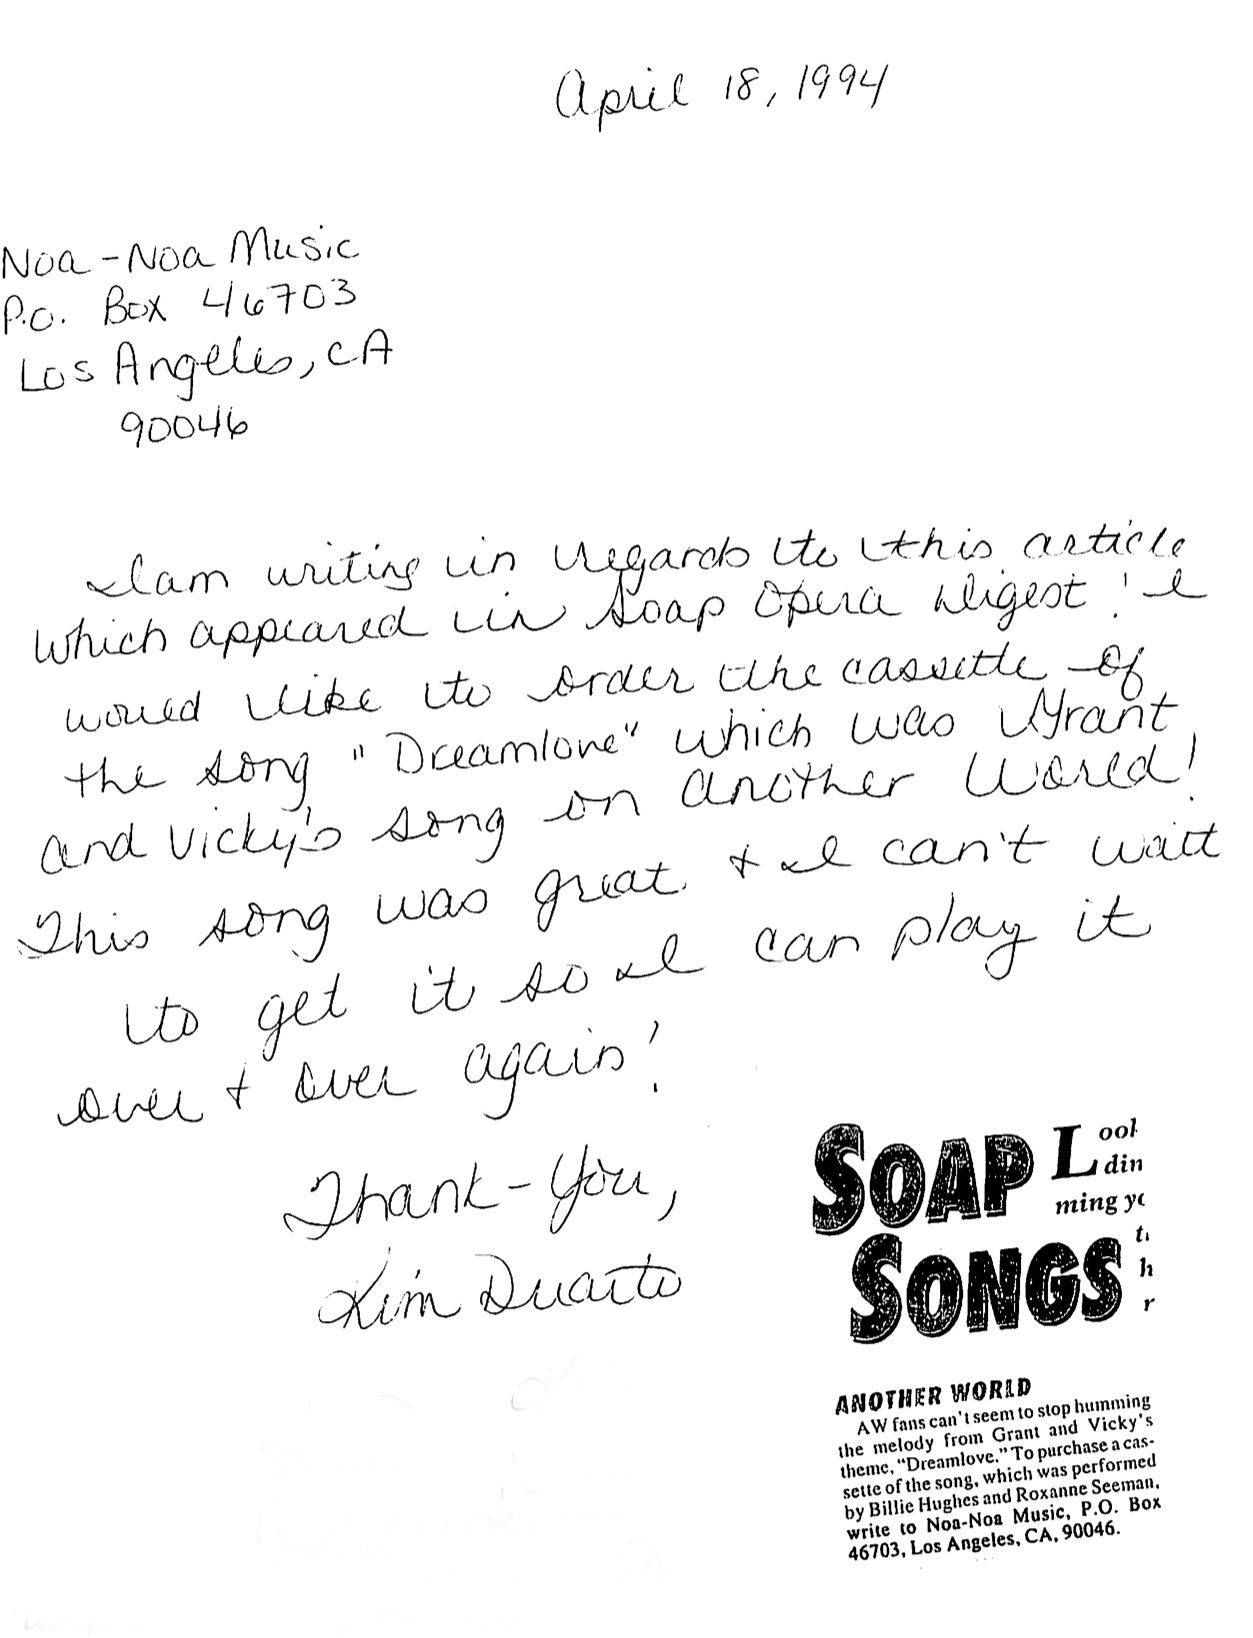 April 18, 1994
Noa-Noa Music
P.O. Box 46703
Los Angeles, CA
90046
I am writing in regards to this article
which appeared in Soap Opera Digest! I
would like to order the cassette of
the song "Dreamlove" which was Grant
and Vicky's song on Another World!
This song was great & I can't wait
to get it so I can play it
over & over again!
Thank-You,
Kim Duarte
SOAP
SONGS
Look
din
ming
ANOTHER WORLD
AW fans can't seem to stop humming
the melody from Grant and Vicky's
theme, "Dreamlove." To purchase a cas-
sette of the song, which was performed
by Billie Hughes and Roxanne Seeman,
write to Noa-Noa Music, P.O. Box
46703, Los Angeles, CA, 90046.